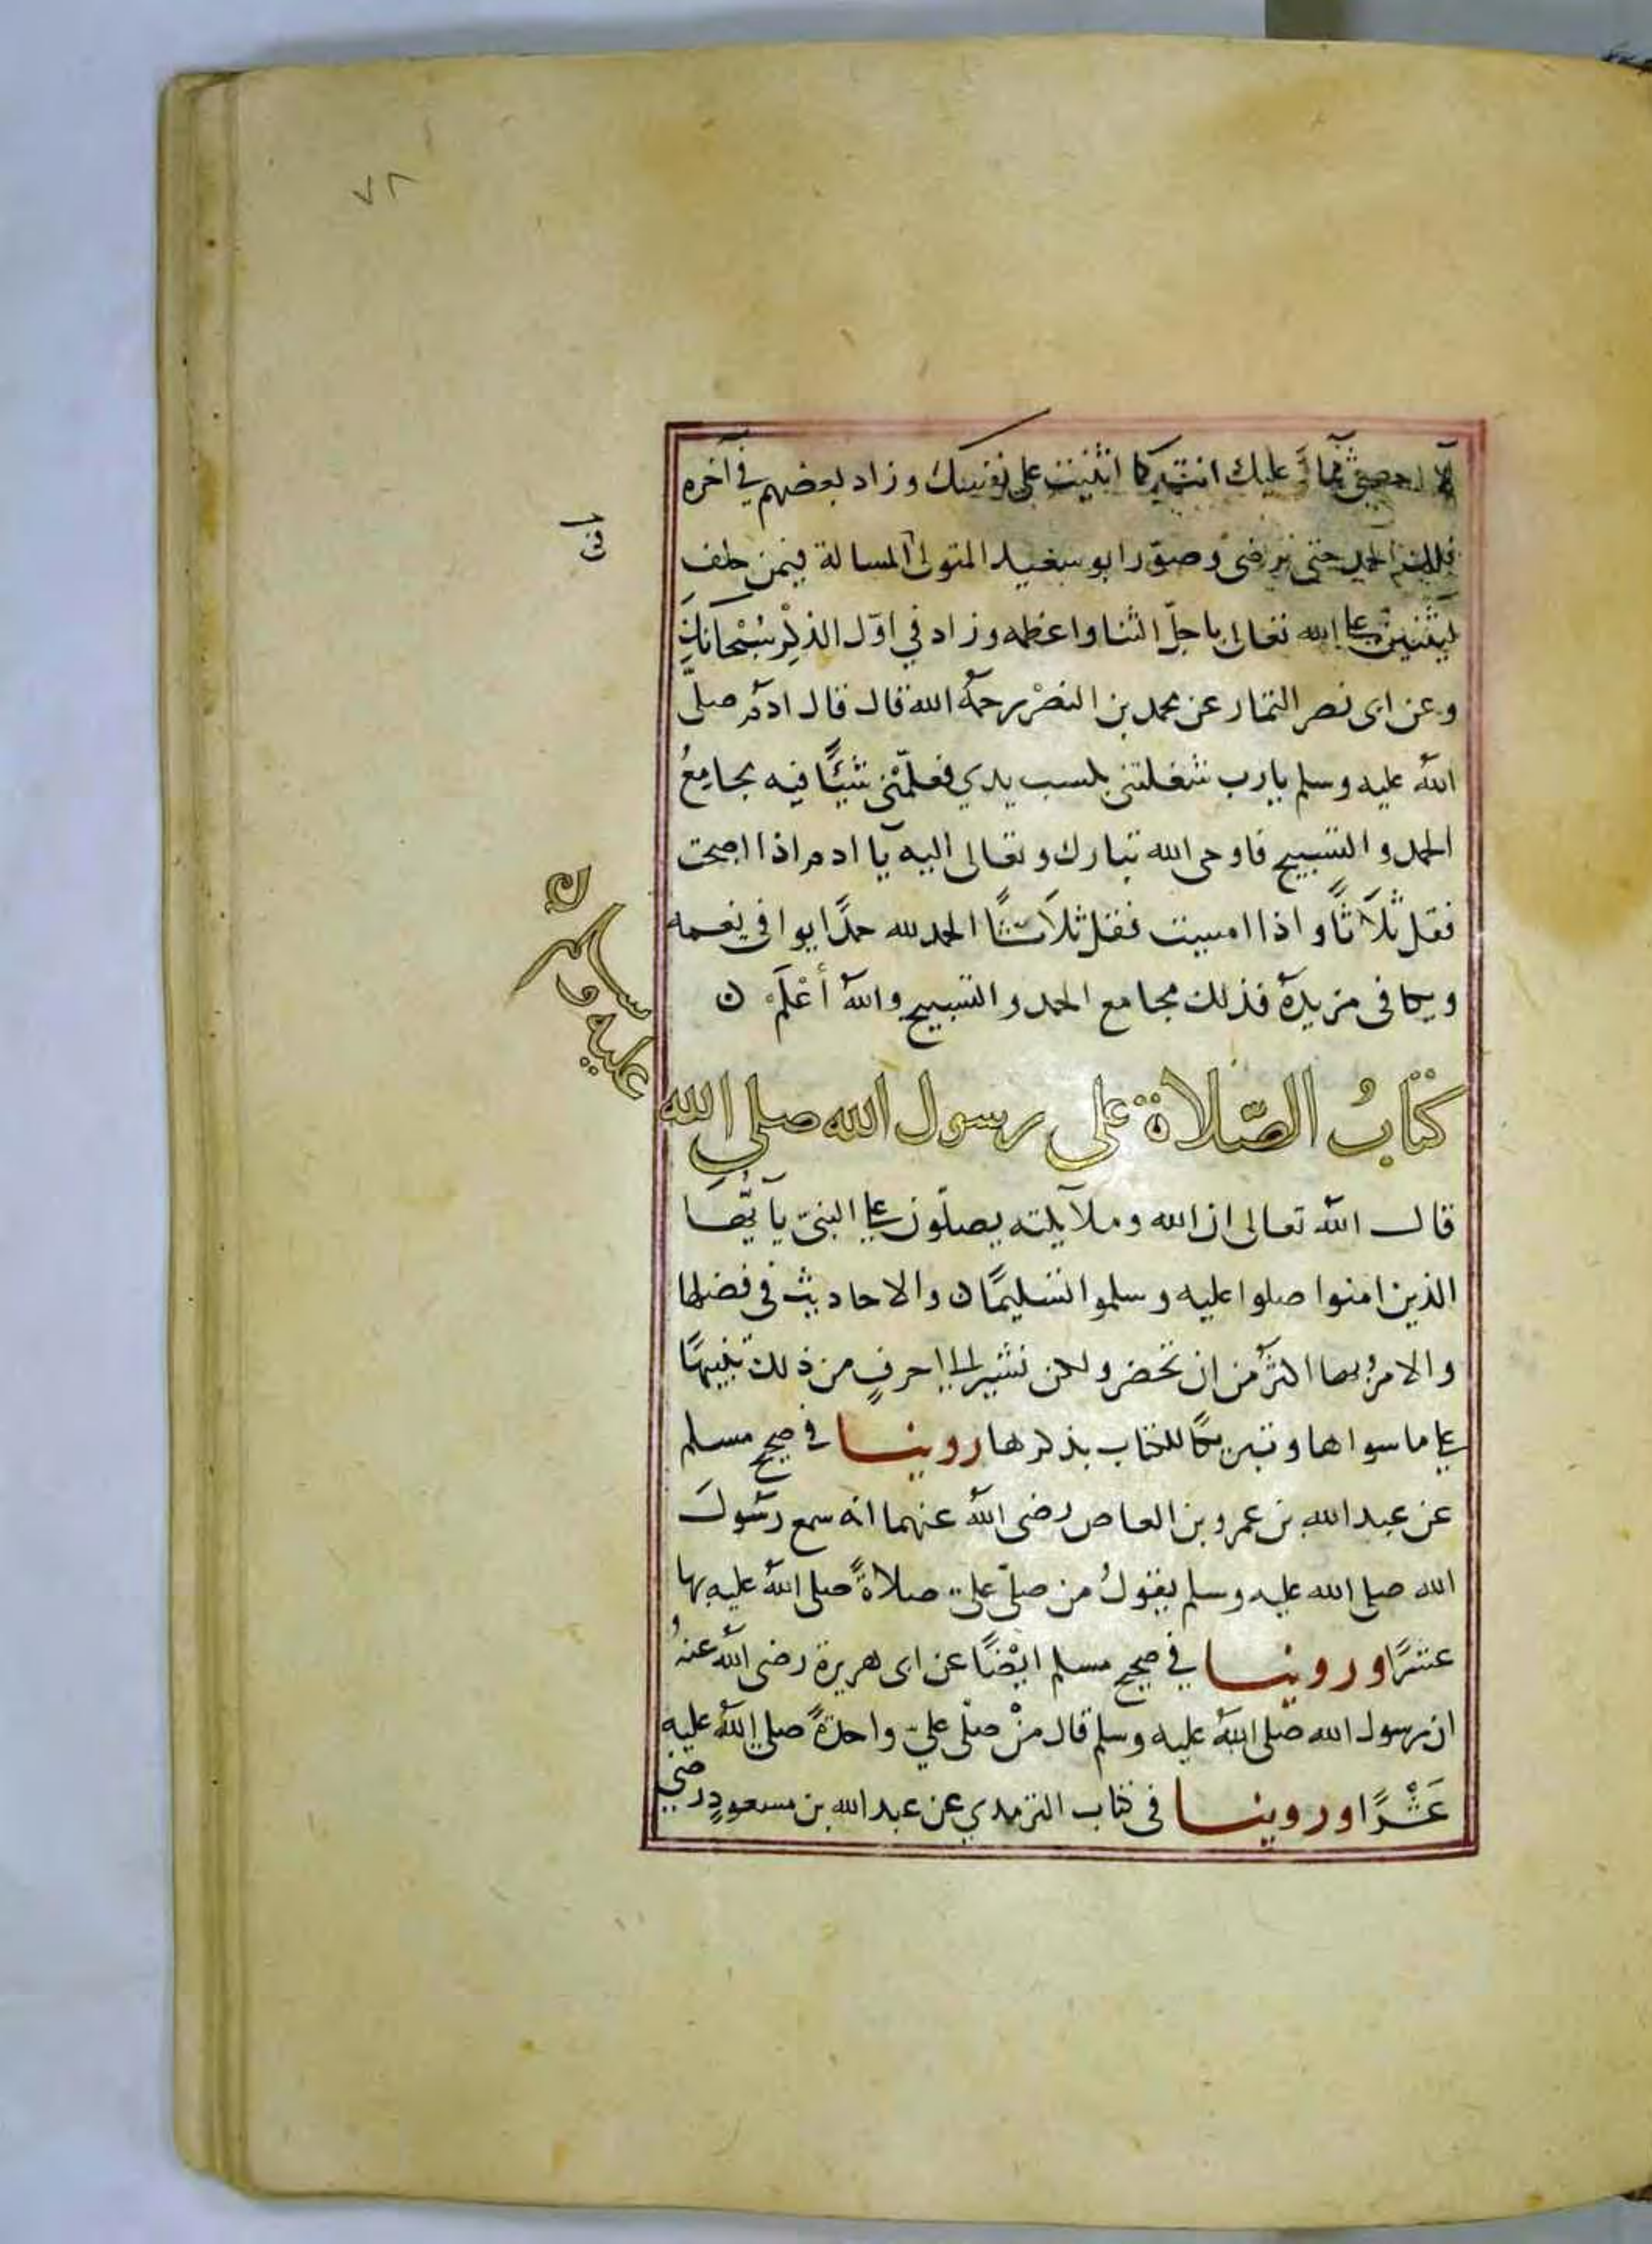 ٧٨
لا احصى ثناء عليك انت كما اثنيت على نفسك وزاد بعضهم في آخره
فلك الحمد حتى ترضى وصوّر ابو سعيد المتولى المسالة فيمن حلف
ليثنين على الله تعالى باجلّ الثنا واعظمه وزاد في اوّل الذكر سُبْحانك
وعن ابى نصر التمار عن محمد بن النضْر رحمهُ الله قال قال ادم صلى
اللهُ عليه وسلم يا رب شغلتنى بكسب يدي فعلّمْنى شيئًا فيه مجامعُ
الحمد والتسبيح فاوحى الله تبارك وتعالى اليه يا ادم اذا اصبحت
فقل ثلاثًا واذا امسيت فقل ثلاثًا الحمد لله حمدًا يوافى نعمه
ويكافى مزيدهُ فذلك مجامع الحمد والتسبيح واللهُ أعْلَمْ ن
كتابُ الصّلاة على رسول الله صلى الله
عليه وسلم ن
قال اللهُ تعالى ان الله وملايكته يصلّون على النبيّ يآ يُّها
الذين امنوا صلوا عليه وسلموا تسليمًا ن والاحاديث فى فضلها
والامرُ بها اكثرُ من ان تحصر ولكن نشير الى احرفٍ من ذلك تنبيهًا
على ما سواها وتبركًا للكتاب بذكرها روينا في صحيح مسلم
عن عبد الله بن عمرو بن العاص رضى اللهُ عنهما انه سمع رسُول
الله صلى الله عليه وسلم يقولُ من صلّى عليّ صلاةً صلى اللهُ عليه بها
عشرًا وروينا في صحيح مسلم ايْضًا عن ابى هريرة رضى اللهُ عنهُ
ان رسول الله صلى اللهُ عليه وسلم قال منْ صلّى عليّ واحدةً صلى اللهُ عليه
عَشْرًا وروينا فى كتاب الترمدي عن عبد الله بن مسعودٍ رضي